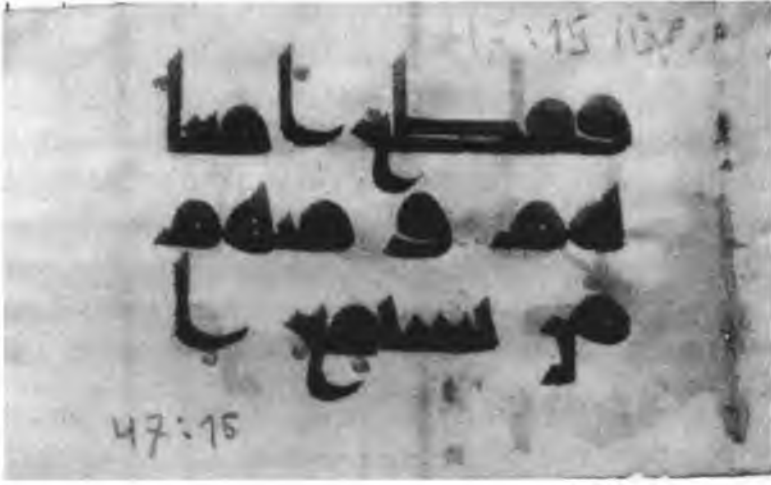 فقطع ا معا
هم و منهم
من يستمع ا
47:16